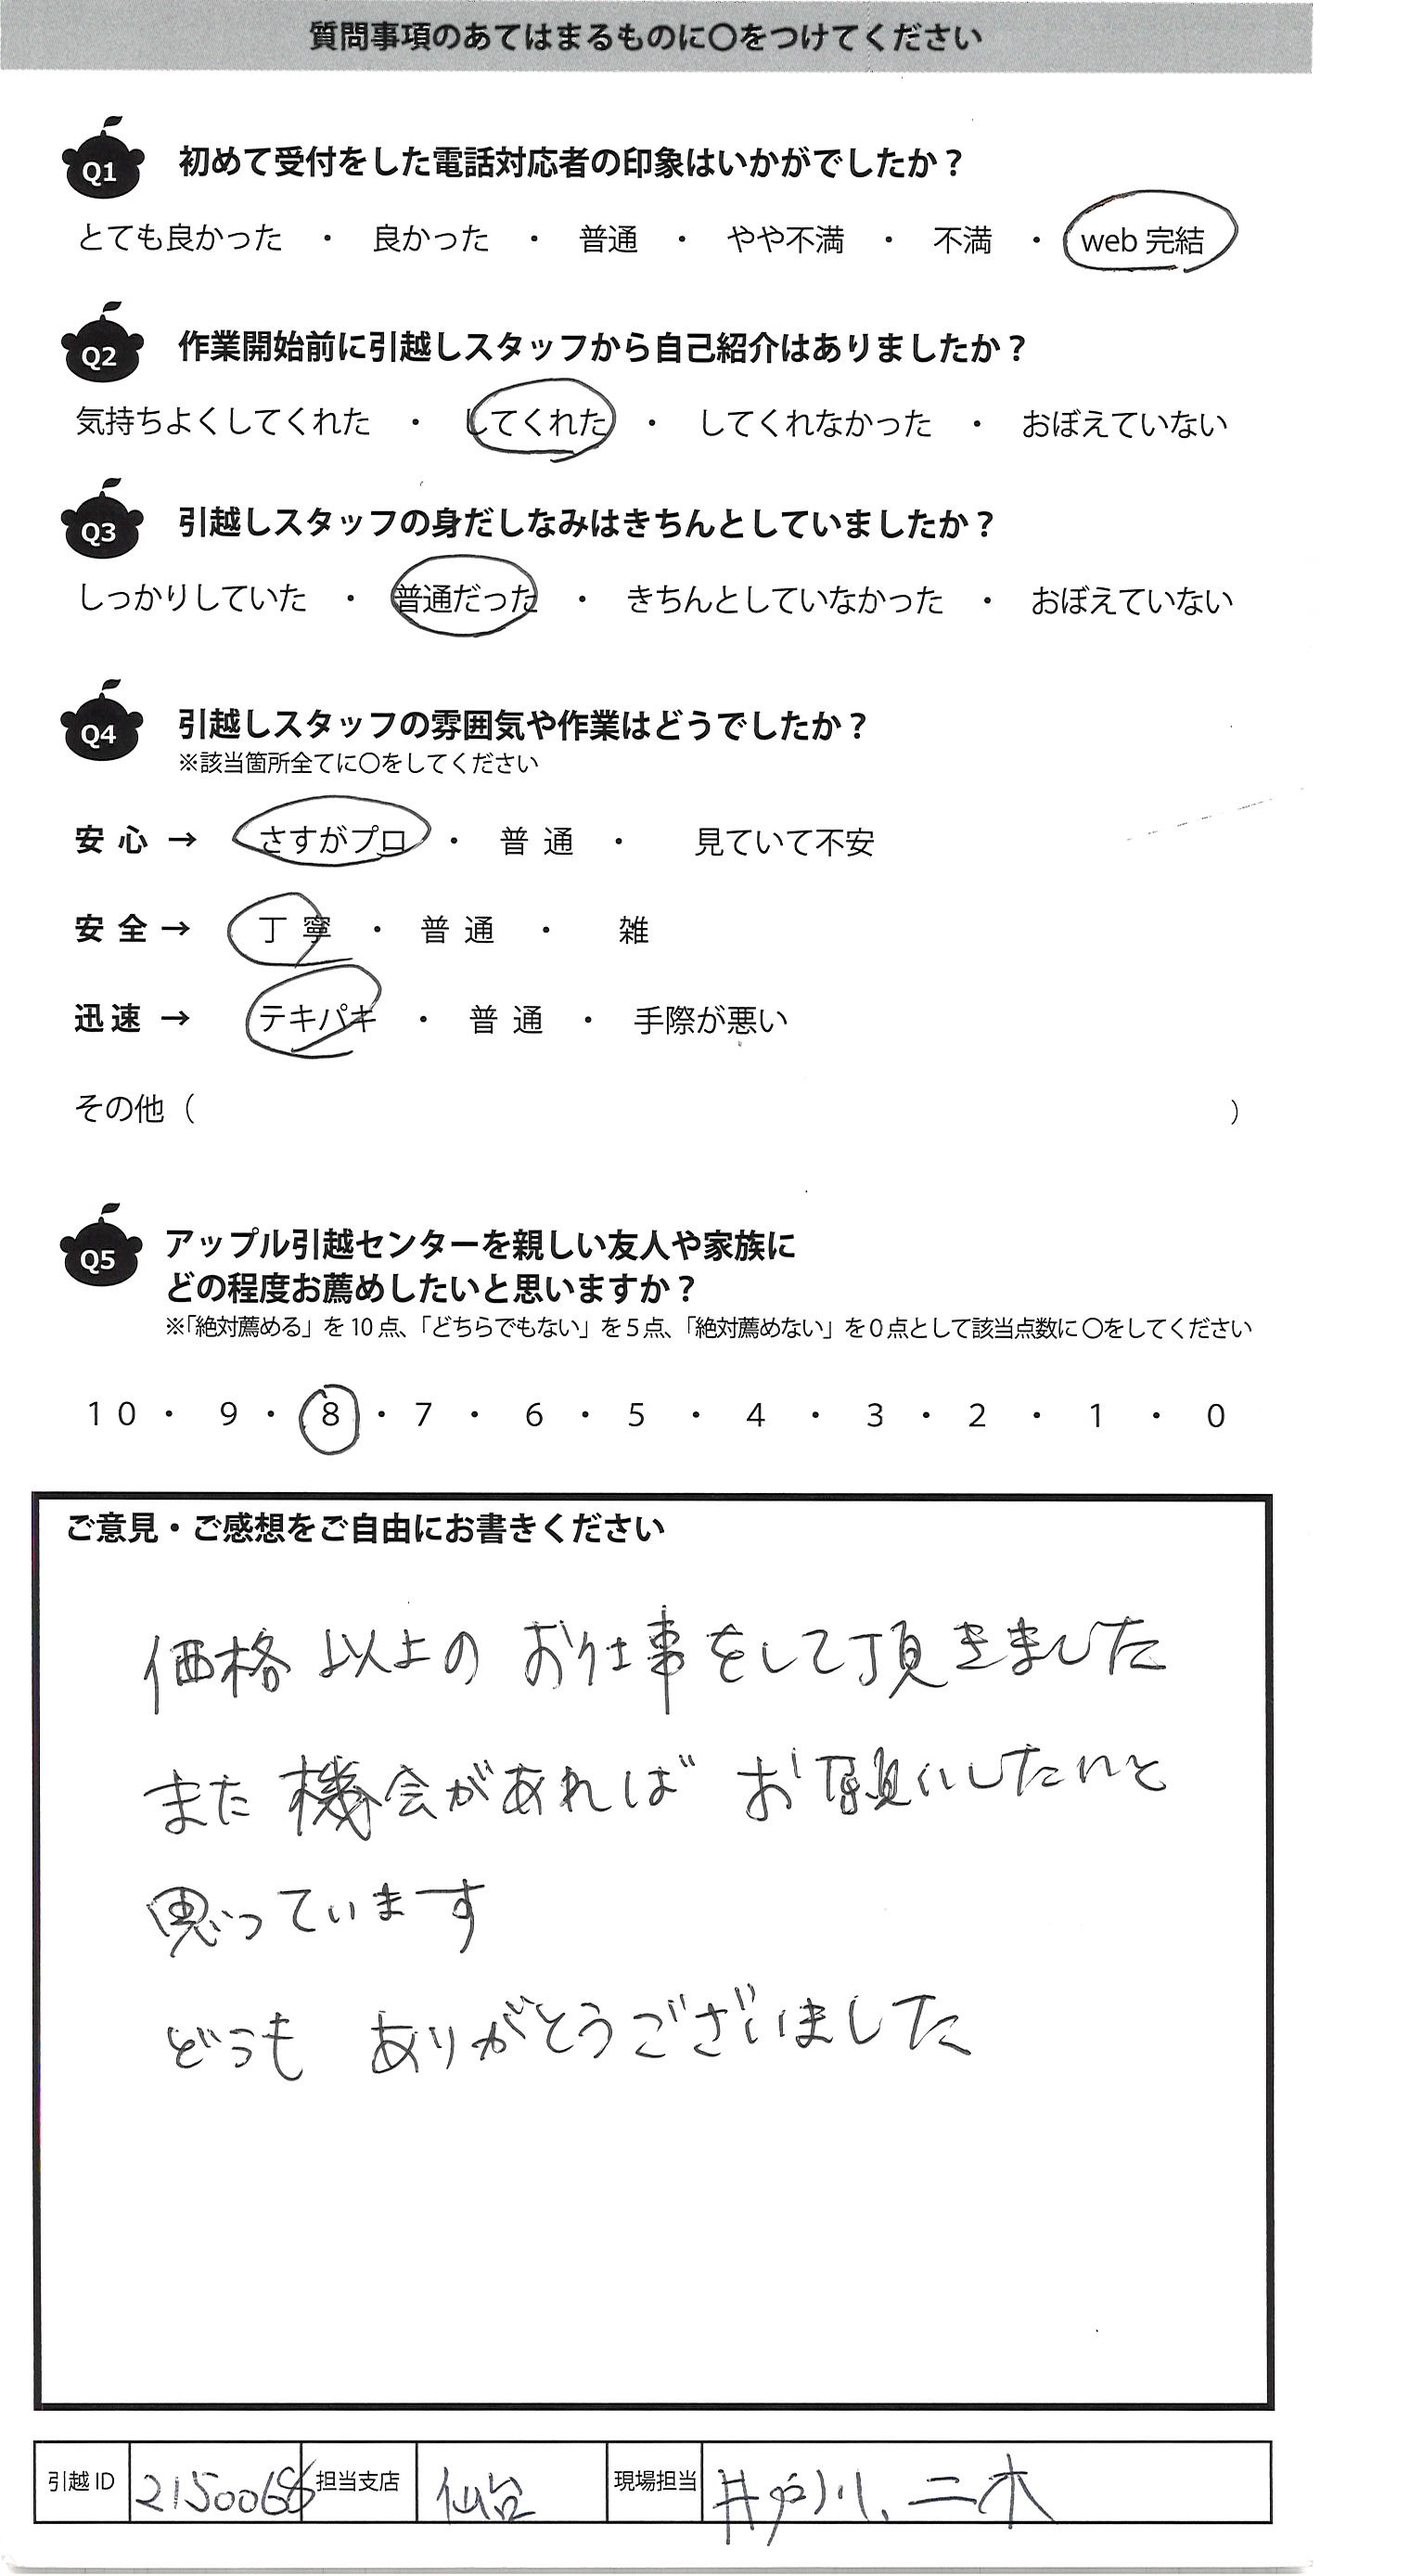 質問事項のあてはまるものに〇をつけてください
Q1 初めて受付をした電話対応者の印象はいかがでしたか？
とても良かった ・ 良かった ・ 普通 ・ やや不満 ・ 不満 ・ web 完結
Q2 作業開始前に引越しスタッフから自己紹介はありましたか？
気持ちよくしてくれた ・ してくれた ・ してくれなかった ・ おぼえていない
Q3 引越しスタッフの身だしなみはきちんとしていましたか？
しっかりしていた ・ 普通だった ・ きちんとしていなかった ・ おぼえていない
Q4 引越しスタッフの雰囲気や作業はどうでしたか？
※該当箇所全てに〇をしてください
安心 → さすがプロ ・ 普通 ・ 見ていて不安
安全 → 丁寧 ・ 普通 ・ 雑
迅速 → テキパキ ・ 普通 ・ 手際が悪い
その他（ ）
Q5 アップル引越センターを親しい友人や家族に
どの程度お薦めしたいと思いますか？
※「絶対薦める」を 10 点、「どちらでもない」を 5 点、「絶対薦めない」を 0 点として該当点数に 〇をしてください
10 ・ 9 ・ 8 ・ 7 ・ 6 ・ 5 ・ 4 ・ 3 ・ 2 ・ 1 ・ 0
ご意見・ご感想をご自由にお書きください
価格以上の お仕事をして頂きました
また機会があれば お願いしたいと
思っています
どうも ありがとうございました
引越 ID 担当支店 仙台 現場担当 井戸川、二木